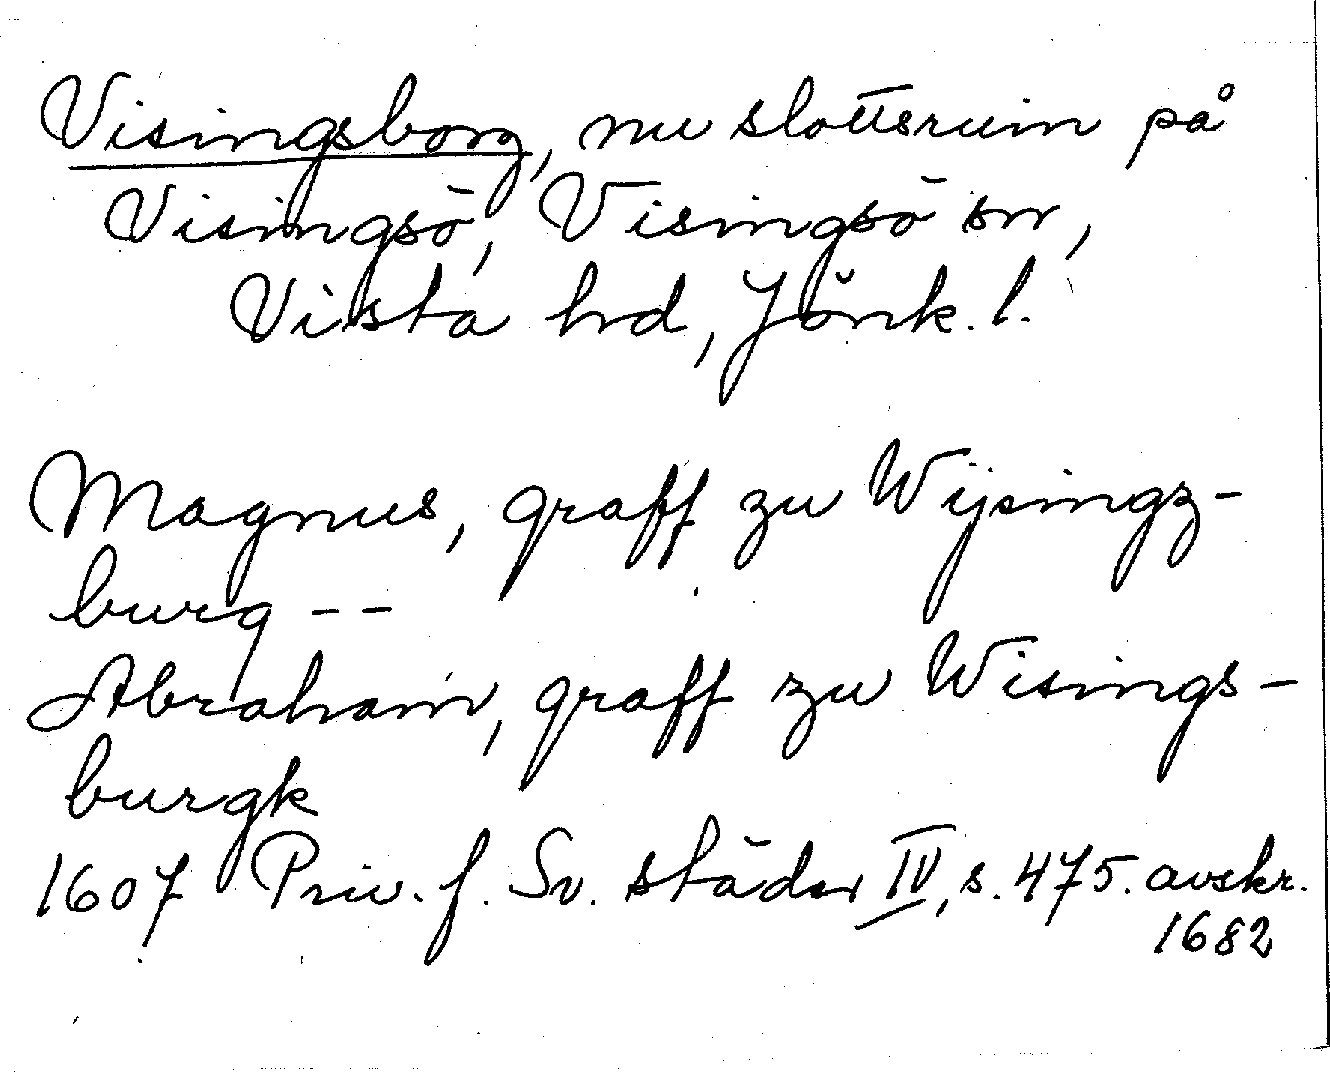 Visingsborg, nu slottsruin på
Visingsö, Visingsö sn,
Vista hd, Jönk. l.
Magnus, graff zu Wijsingz-
burg --
Abraham, graff zu Wisings-
burgk
1607 Priv. f. Sv. städer IV, s. 475. avskr.
1682